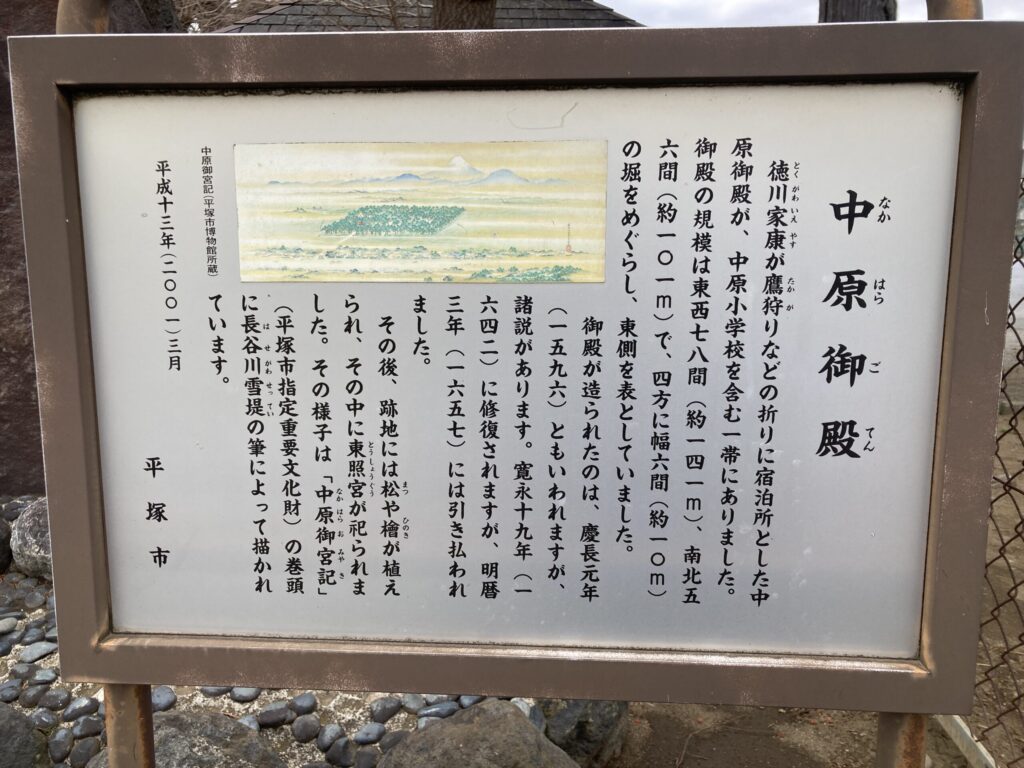 中原御殿
なか はら ご てん
徳川家康が鷹狩りなどの折りに宿泊所とした中
とく がわ いえ やす たか が
原御殿が、中原小学校を含む一帯にありました。
御殿の規模は東西七八間（約一四一m）、南北五
六間（約一〇一m）で、四方に幅六間（約一〇m）
の堀をめぐらし、東側を表としていました。
御殿が造られたのは、慶長元年
（一五九六）ともいわれますが、
諸説があります。寛永十九年（一
六四二）に修復されますが、明暦
三年（一六五七）には引き払われ
ました。
その後、跡地には松や檜が植え
まつ ひのき
られ、その中に東照宮が祀られま
とうしょうぐう
した。その様子は「中原御宮記」
なか はら お みや き
（平塚市指定重要文化財）の巻頭
に長谷川雪堤の筆によって描かれ
は せ がわ せっ てい
ています。
中原御宮記（平塚市博物館所蔵）
平成十三年（二〇〇一）三月
平塚市